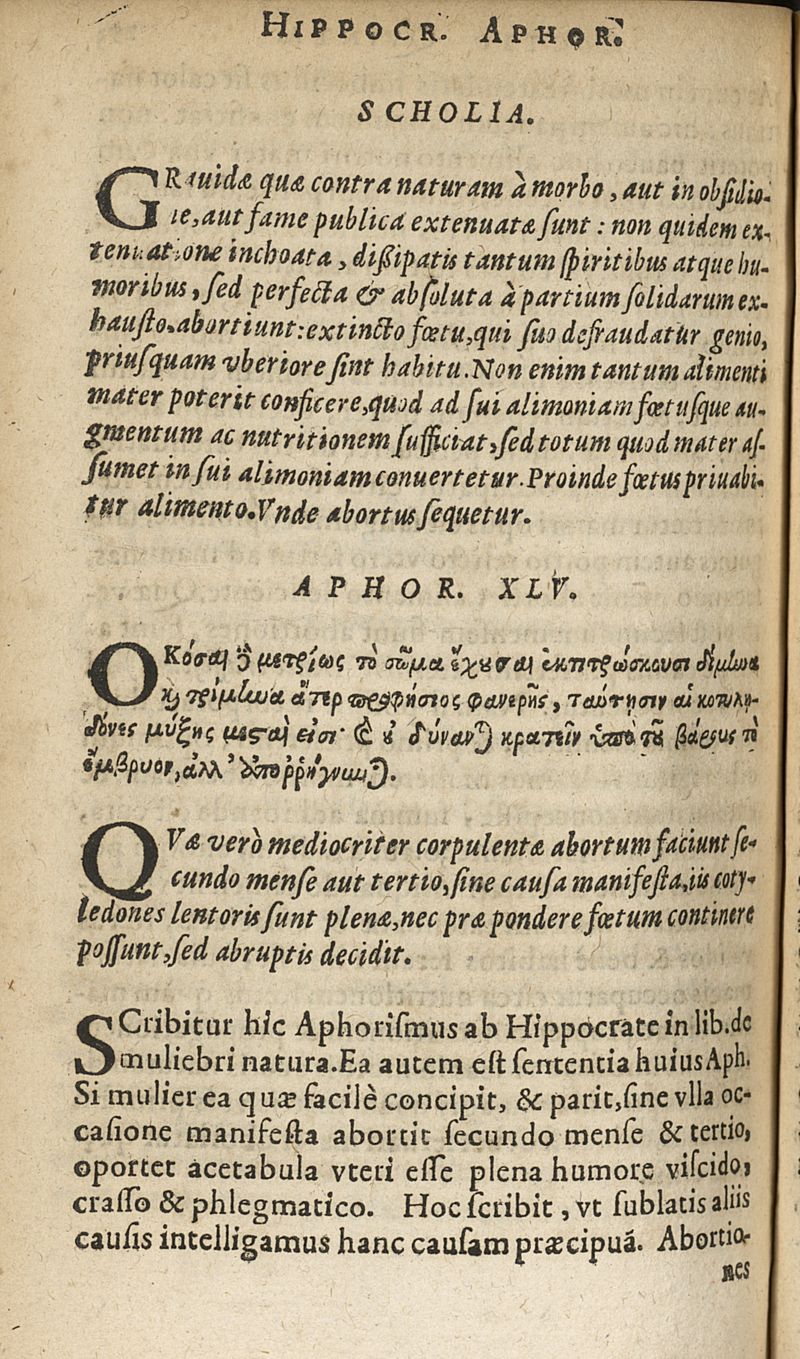 HIPPOCR. APHOR.
SCHOLIA.
GRauidæ quæ contra naturam à morbo, aut in obsidio-
ne, aut fame publica extenuatæ sunt : non quidem ex-
tenuatione inchoata, dißipatis tantum spiritibus atque hu-
moribus, sed perfecta & absoluta à partium solidarum ex-
hausto, abortiunt: extincto fœtu, qui suo defraudatur genio,
priusquam vberiore sint habitu. Non enim tantum alimenti
mater poterit conficere, quod ad sui alimoniam fœtusque au-
gmentum ac nutritionem sufficiat, sed totum quod mater as-
sumet in sui alimoniam conuertetur. Proinde fœtus priuabi-
tur alimento. Vnde abortus sequetur.
APHOR. XLV.
Ὁκόσαι δὲ μετρίως τὸ σῶμα ἔχουσαι ἐκτιτρώσκουσι δίμηνα
καὶ τρίμηνα ἄτερ προφήσιος φανερῆς, ταύτησιν αἱ κοτυλη-
δόνες μύξης μεσταί εἰσι· καὶ οὐ δύνανται κρατεῖν ὑπὸ τοῦ βάρεος τὸ
ἔμβρυον, ἀλλ' ἀποῤῥήγνυνται.
QVæ verò mediocriter corpulentæ abortum faciunt se-
cundo mense aut tertio, sine causa manifesta, iis coty-
ledones lentoris sunt plenæ, nec præ pondere fœtum continere
possunt, sed abruptis decidit.
SCribitur hic Aphorismus ab Hippocrate in lib. de
muliebri natura. Ea autem est sententia huius Aph.
Si mulier ea quæ facilè concipit, & parit, sine vlla oc-
casione manifesta abortit secundo mense & tertio,
oportet acetabula vteri esse plena humore viscido,
crasso & phlegmatico. Hoc scribit, vt sublatis aliis
causis intelligamus hanc causam præcipuã. Abortio-
nes